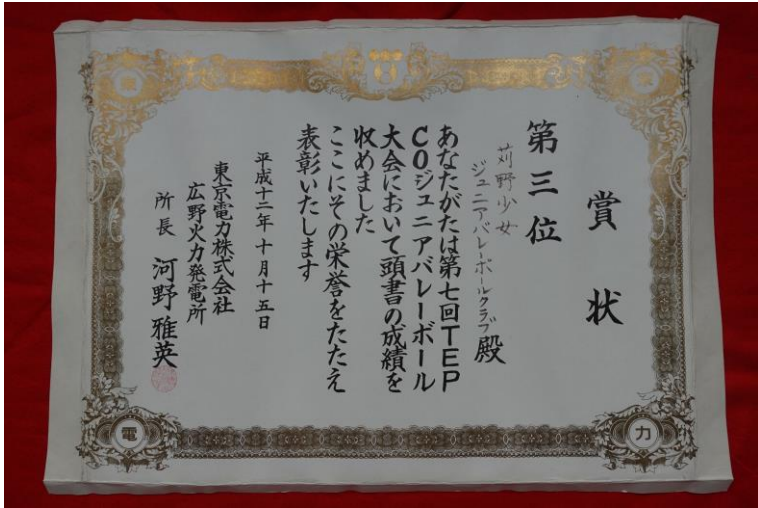 賞状
第三位
苅野少女
ジュニアバレーボールクラブ殿
あなたがたは第七回TEP
COジュニアバレーボール
大会において頭書の成績を
収めました
ここにその栄誉をたたえ
表彰いたします
平成十二年十月十五日
東京電力株式会社
広野火力発電所
所長 河野雅英
電
力